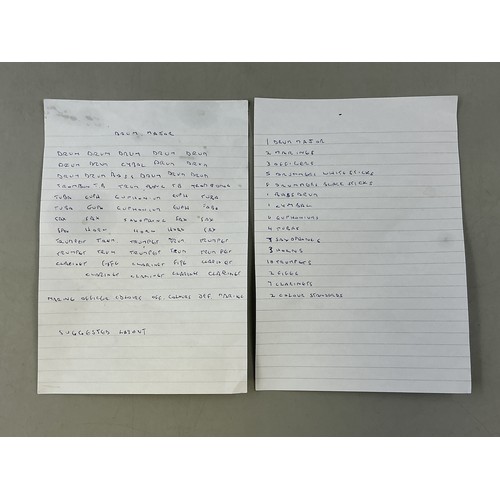 DRUM MAJOR
DRUM DRUM DRUM DRUM DRUM
DRUM DRUM CYBAL DRUM DRUM
DRUM DRUM BASS DRUM DRUM DRUM
TUBA EUPH EUPHONIUM EUPH TUBA
TUBA EUPH EUPHONIUM EUPH TUBA
SAX SAX SAXOPHONE SAX SAX
SAX HORN HORN HORN SAX
TRUMPET TRUM TRUMPET TRUM TRUMPET
TRUMPET TRUM TRUMPET TRUM TRUMPET
CLARINET FIFE CLARINET FIFE CLARINET
CLARINET CLARINET CLARION CLARINET
MARINE OFFICER COLOURS OFF. COLOURS OFF. MARINE
SUGGESTED LAYOUT
1 DRUM MAJOR
2 MARINES
3 OFFICERS
5 DRUMMERS WHITE STICKS
DRUMMERS BLACK STICKS
1 BASS DRUM
1 CYMBAL
EUPHONIUMS
4 TUBAS
SAXOPHONES
3 HORNS
10 TRUMPETS
2 FIFES
7 CLARINETS
2 COLOUR STANDARDS